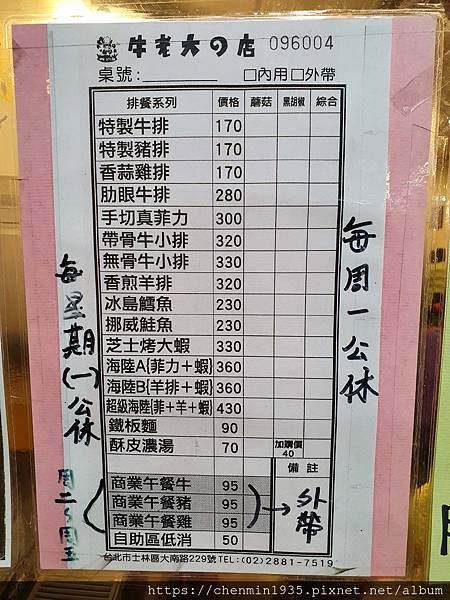 牛老大の店 096004
桌號: □內用□外帶
排餐系列 價格 蘑菇 黑胡椒 綜合
特製牛排 170
特製豬排 170
香蒜雞排 170
肋眼牛排 280
手切真菲力 300
帶骨牛小排 320
無骨牛小排 330
香煎羊排 320
冰島鱈魚 230
挪威鮭魚 230
芝士烤大蝦 330
海陸A{菲力+蝦} 360
海陸B{羊排+蝦} 360
超級海陸{菲+羊+蝦} 430
鐵板麵 90
酥皮濃湯 70 加購價 40
備註
商業午餐牛 95
商業午餐豬 95
商業午餐雞 95
自助區低消 50
外帶
台北市士林區大南路229號 TEL:(02)2881-7519
每星期(一)公休
周二~周五
每周一公休
https://chenmin1935.pixnet.net/album